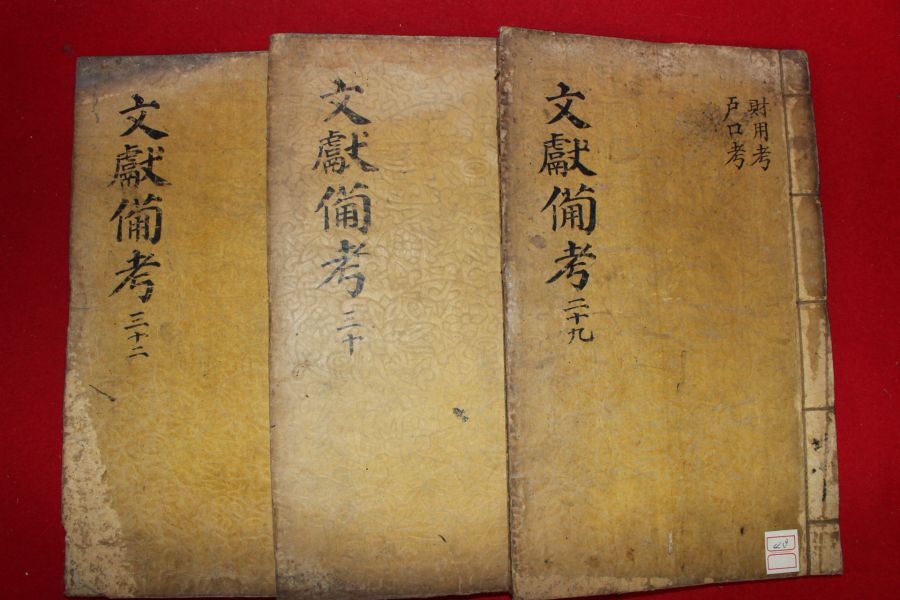 文獻備考 三十二
文獻備考 三十
文獻備考 二十九
財用考
戶口考